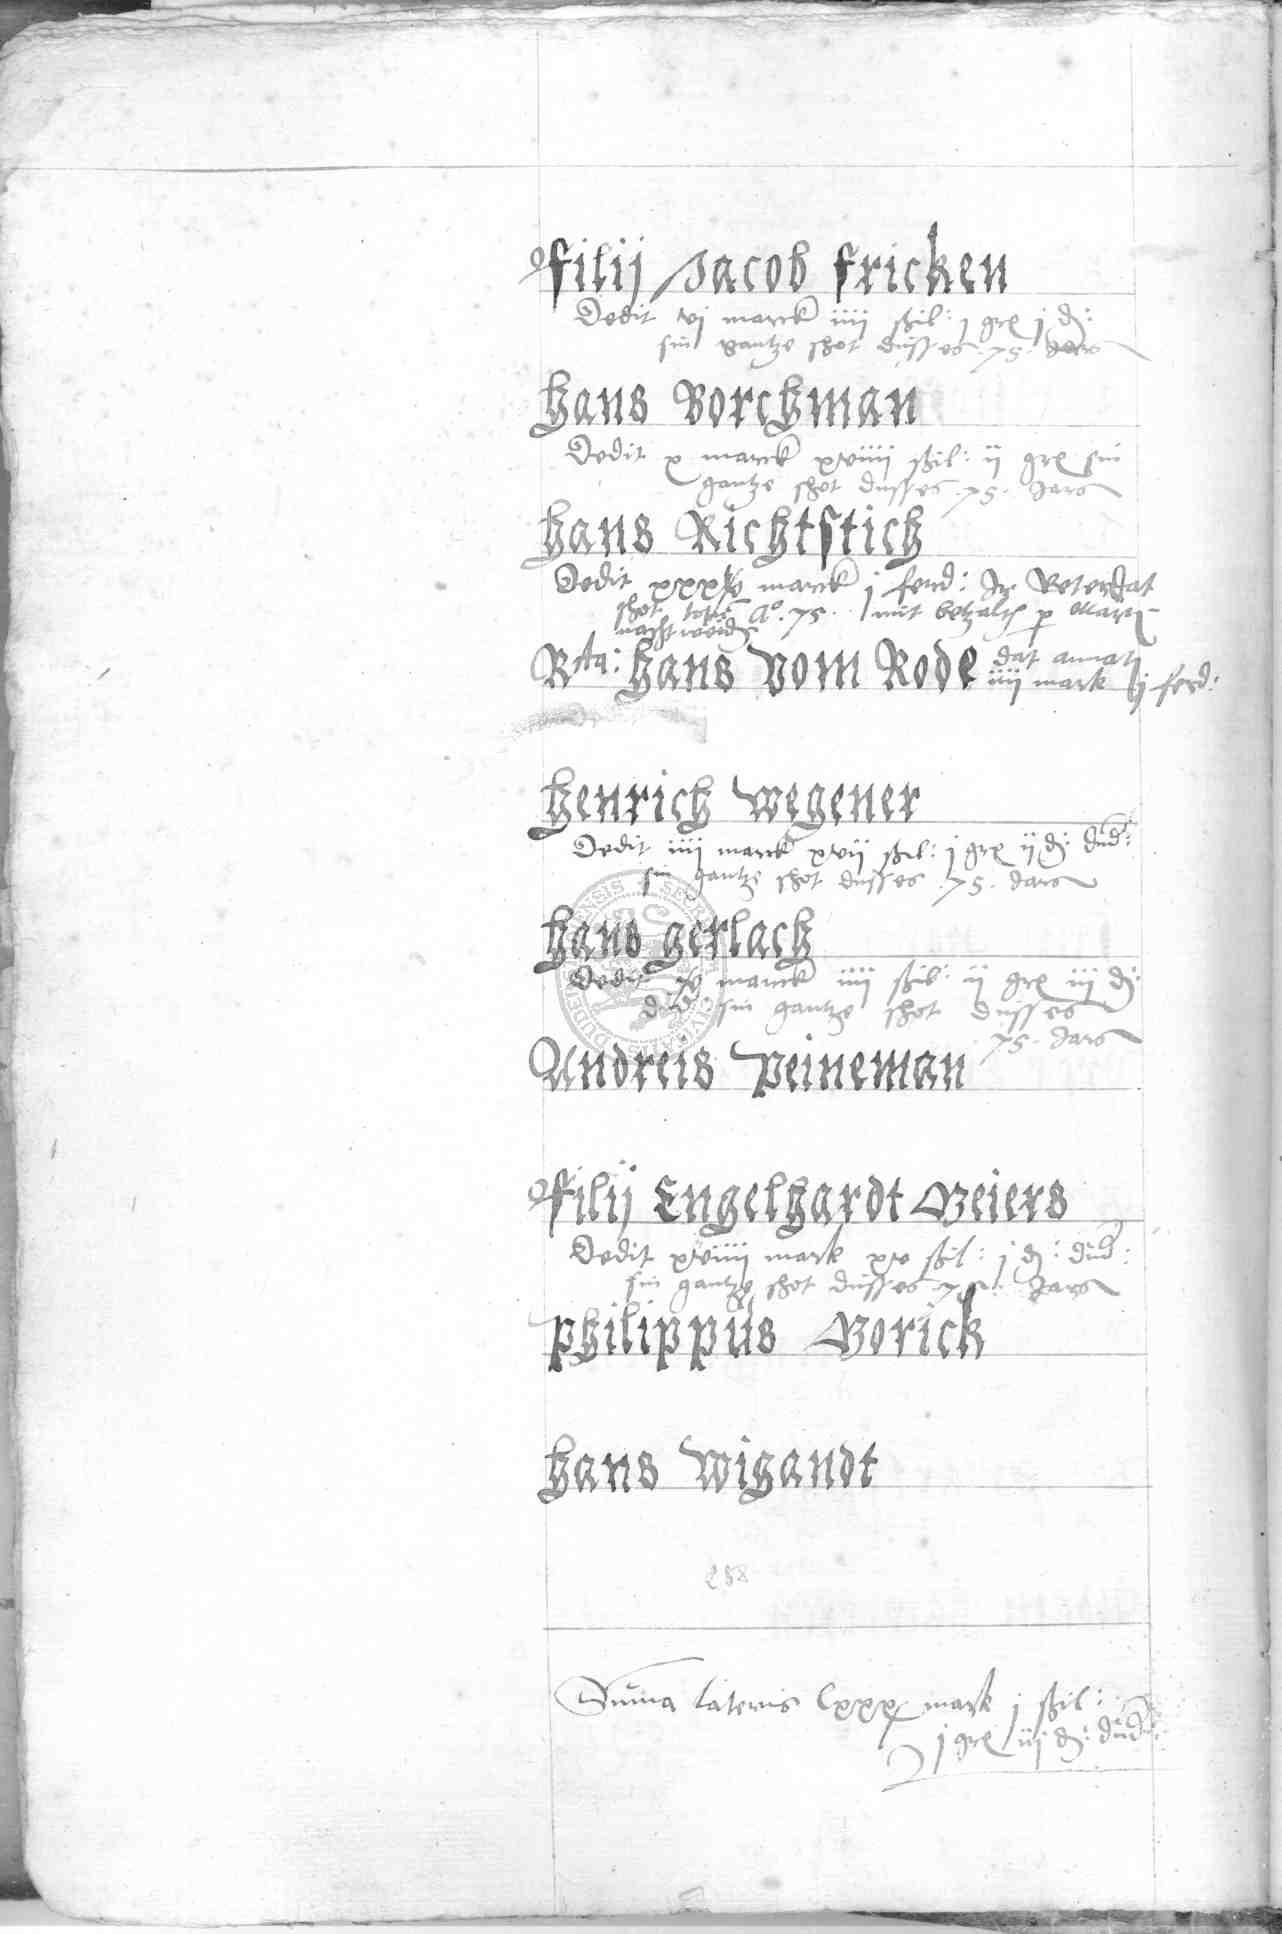 filij Jacob fricken
Dedit vj marck iiij ßil: j gr j d:
sin gantze shot dusses .75. Jars
hans Borchman
Dedit x marck xviiij ßil: ij gr sin
gantze shot dusses .75. Jars
hans Richtstich
Dedit marck j ferd:
shot A° .75. mit
hans vom Rode dat
iiij mark ij ferd:
henrich wegener
Dedit iiij marck xvij ßil: j gr ij d: dud:
sin gantze shot dusses .75. Jars
hans gerlach
Dedit marck iiij ßil: ij gr iij d:
dud sin gantze shot dusses
.75. Jars
Andreis Peineman
filij Engelhardt Beiers
Dedit xviiij mark xv ßil: j d: dud:
sin gantze shot dusses .75. Jars
philippus Borick
hans Wigandt
Summa lateris lxxx mark j ßil:
j gr iij d: dud: